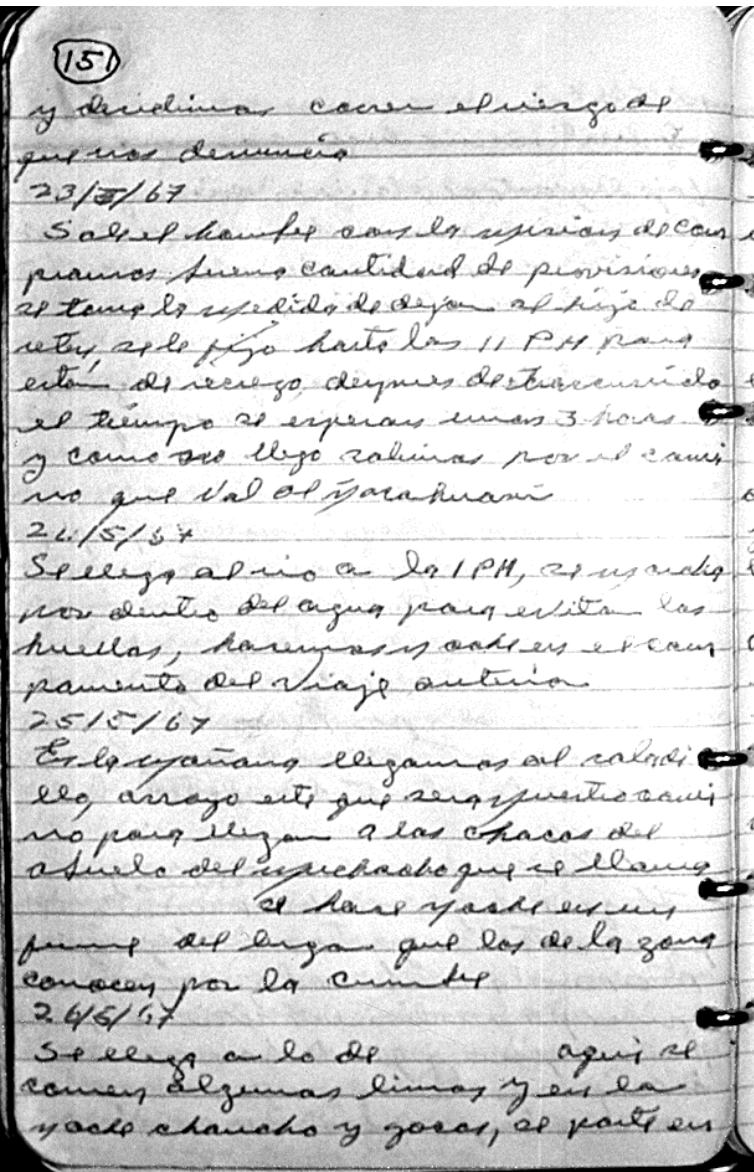 151
y decidimos correr el riesgo de
que nos denuncie
23/5/67
Sale el hombre con la mision de com
prarnos buena cantidad de provisiones
se toma la medida de dejar al hijo de
reten, se le fijo hasta las 11 PM para
estar de regreso, despues de trascurrido
el tiempo se esperan unas 3 horas
y como no llego salimos por el cami
no que va al
24/5/67
Se llega al rio a la 1 PM, se marcha
por dentro del agua para evitar las
huellas, hacemos noche en el cam
pamento del viaje anterior
25/5/67
En la mañana llegamos al saladi
llo, arroyo este que sera nuestro cami
no para llegar a las chacos del
abuelo del muchacho que se llama
se hace noche en un
firme del lugar que los de la zona
conocen por la cumbre
26/5/67
Se llega a lo de aqui se
comen algunas limas y en la
noche chancho y yocos, se parte en